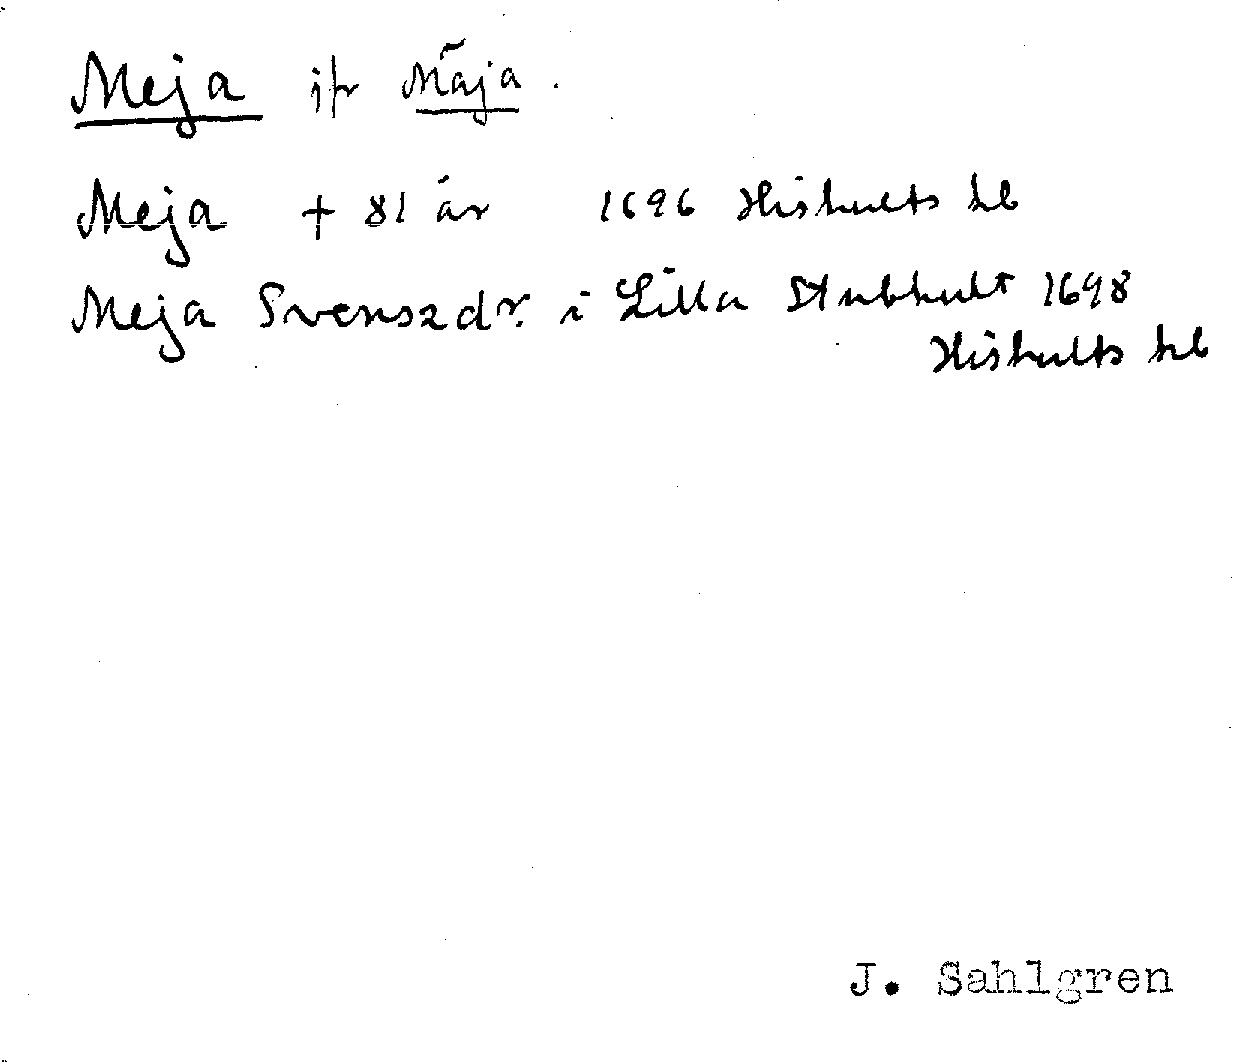 Meja jfr Mäja.
Meja + 81 år 1696 Hishults kb
Meja Svenszdr. i Lilla Stubhult 1698
Hishults kb
J. Sahlgren